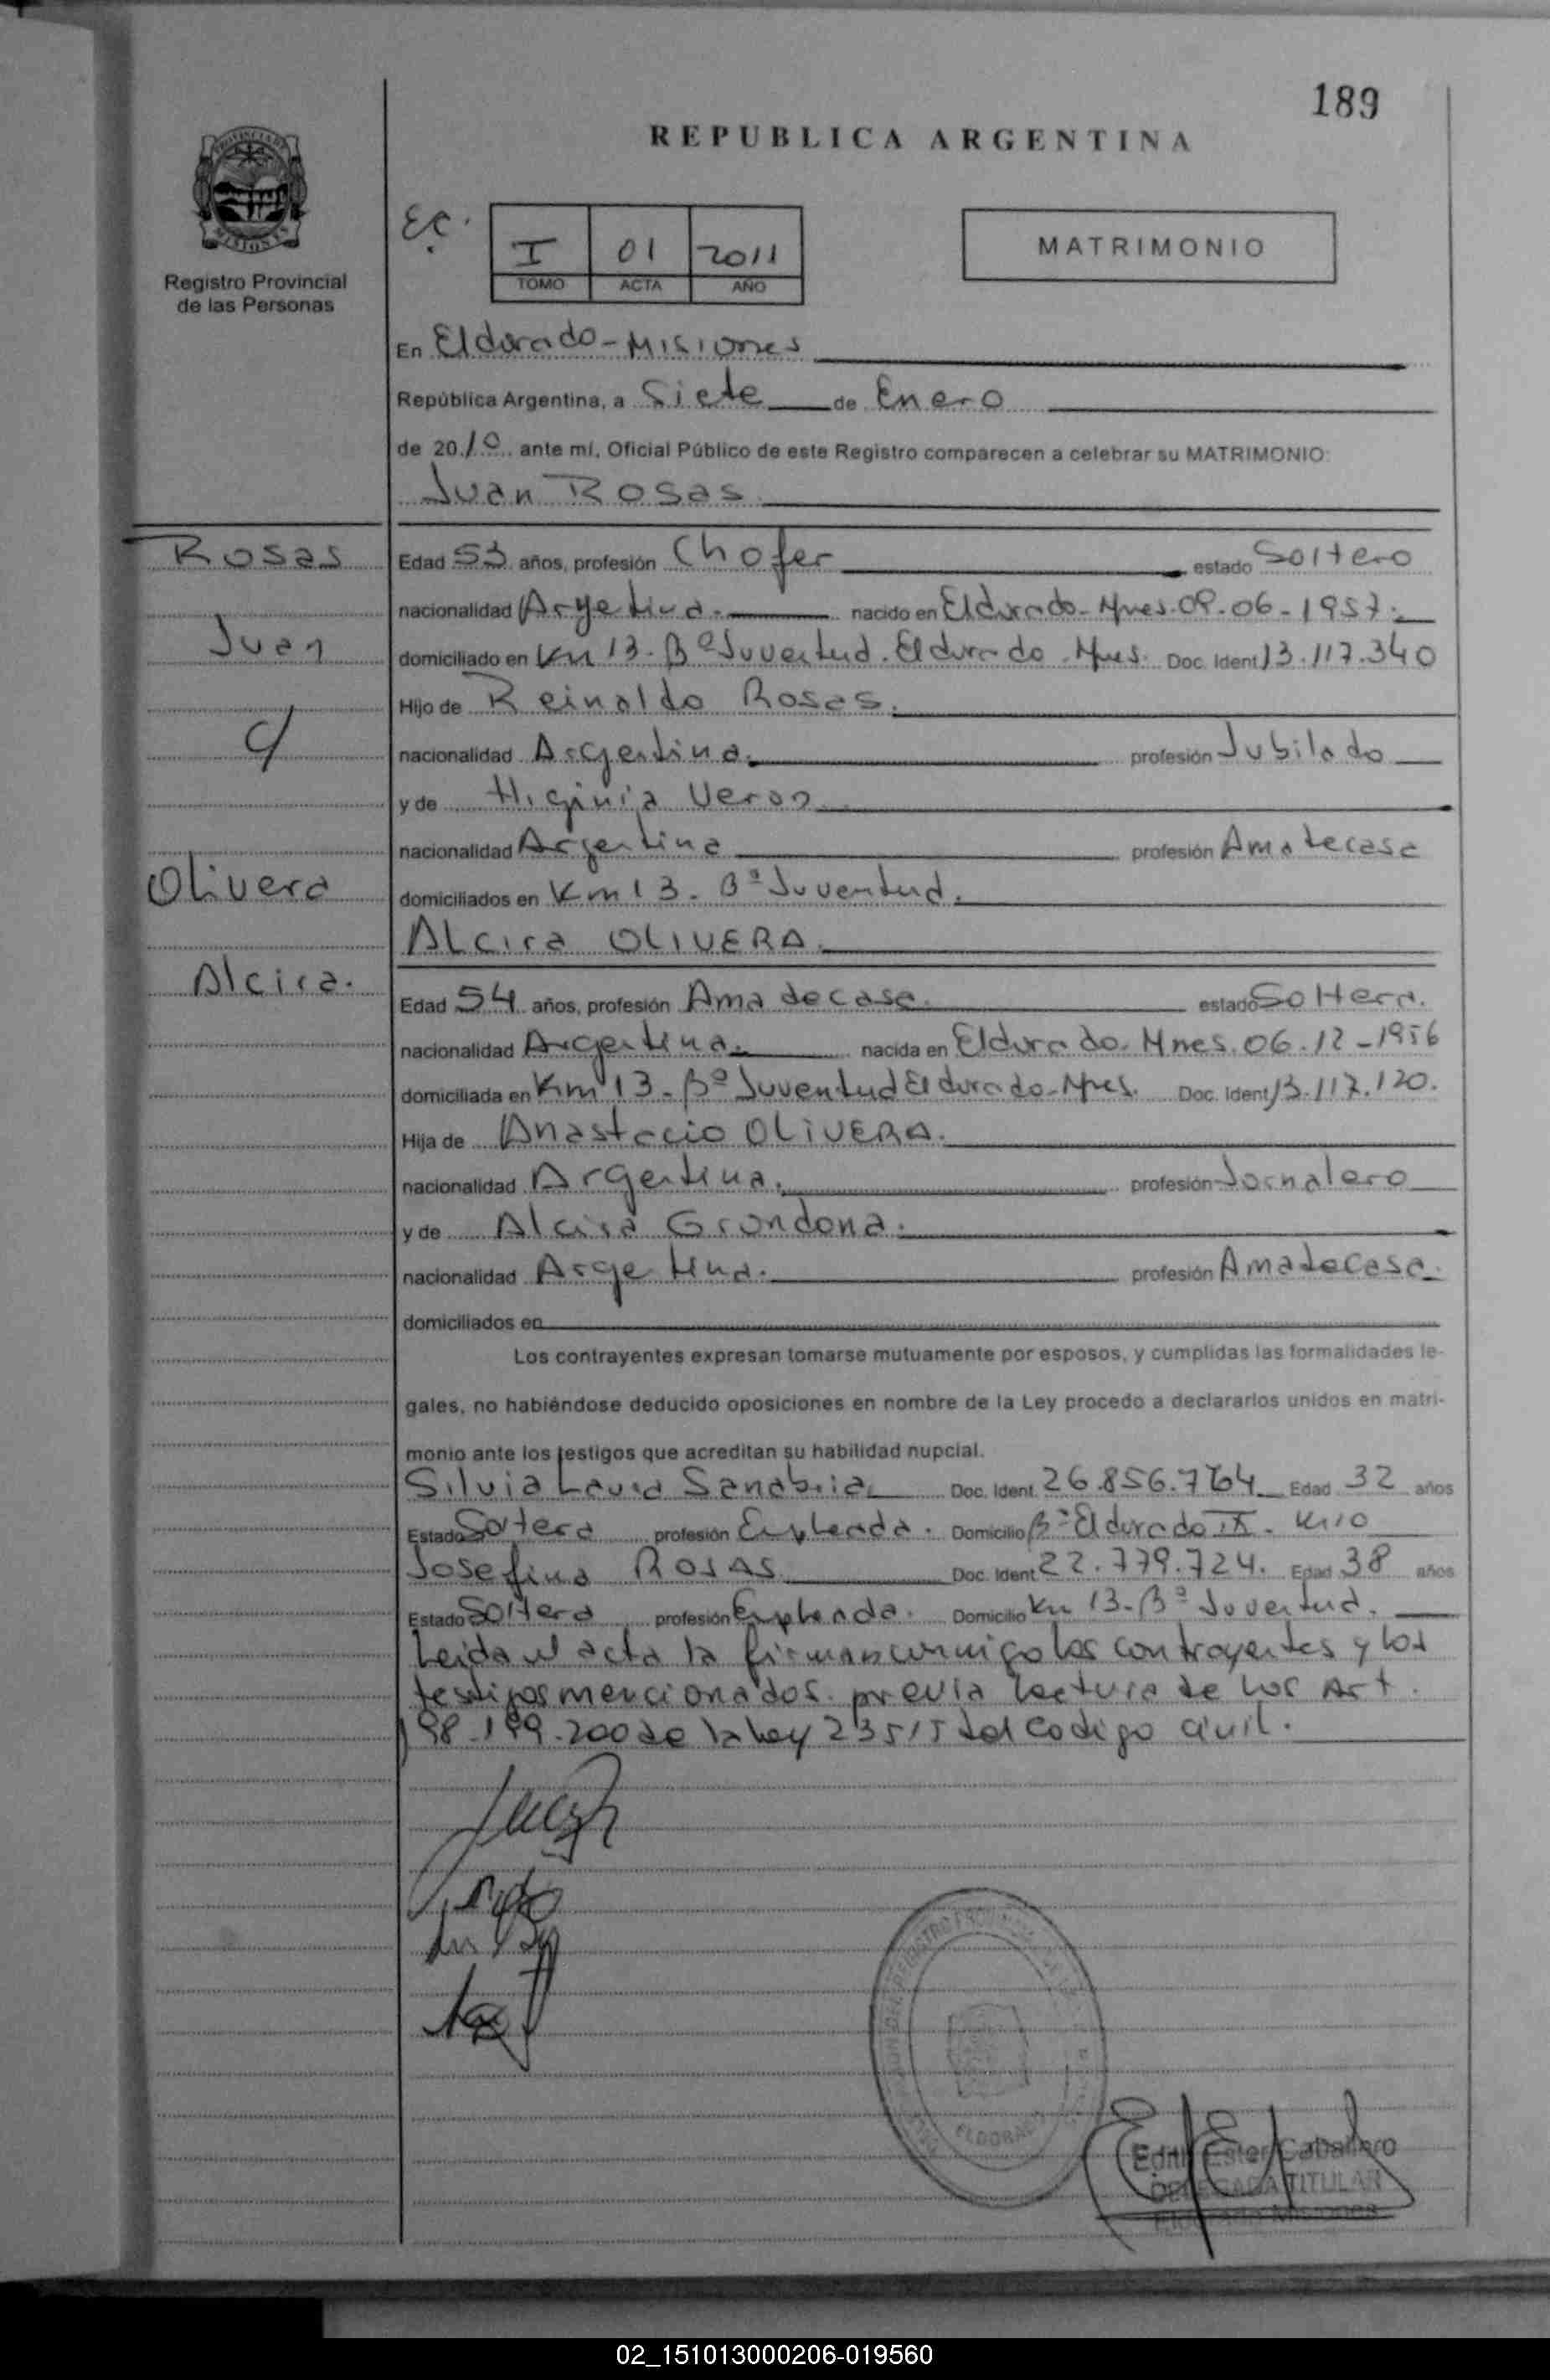 189
REPUBLICA ARGENTINA
PROVINCIA DE
MISIONES
Registro Provincial
de las Personas
I 01 2011
TOMO ACTA AÑO
MATRIMONIO
En Eldorado - Misiones
República Argentina, a Siete de Enero
de 2010 ante mí, Oficial Público de este Registro comparecen a celebrar su MATRIMONIO:
Juan Rosas
Rosas
Juan
c/
Olivera
Alcira.
Edad 53 años, profesión Chofer estado Soltero
nacionalidad Argentina. nacido en Eldorado - Mnes. 09-06-1957.
domiciliado en Km 13 - Bº Juventud. Eldorado. Mnes. Doc. Ident 13.117.340
Hijo de Reinaldo Rosas.
nacionalidad Argentina. profesión Jubilado
y de Higinia Veron
nacionalidad Argentina profesión Ama de casa
domiciliados en Km 13 - Bº Juventud.
Alcira OLIVERA.
Edad 54 años, profesión Ama de casa. estado Soltera.
nacionalidad Argentina. nacida en Eldorado. Mnes. 06-12-1956
domiciliada en Km 13 - Bº Juventud Eldorado - Mnes. Doc. Ident 13.117.120.
Hija de Anastacio OLIVERA.
nacionalidad Argentina. profesión Jornalero
y de Alcira Grondona.
nacionalidad Argentina. profesión Ama de casa.
domiciliados en
Los contrayentes expresan tomarse mutuamente por esposos, y cumplidas las formalidades le-
gales, no habiéndose deducido oposiciones en nombre de la Ley procedo a declararlos unidos en matri-
monio ante los testigos que acreditan su habilidad nupcial.
Silvia Laura Sanabria Doc. Ident. 26.856.764 Edad 32 años
Estado Soltera profesión Empleada. Domicilio Bº Eldorado IX. Km 10
Josefina ROSAS Doc. Ident 22.779.724. Edad 38 años
Estado Soltera profesión Empleada. Domicilio Km 13 - Bº Juventud.
Leida el acta la firman conmigo los contrayentes y los
testigos mencionados. previa lectura de los Art.
198-199-200 de la ley 23515 del Codigo Civil.
ELDORADO
Edith Ester Caballero
DELEGADA TITULAR
Eldorado Misiones
02_151013000206-019560